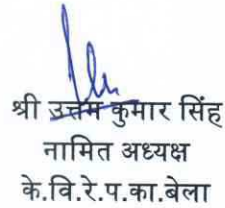 श्री उत्तम कुमार सिंह
नामित अध्यक्ष
के.वि.रे.प.का.बेला